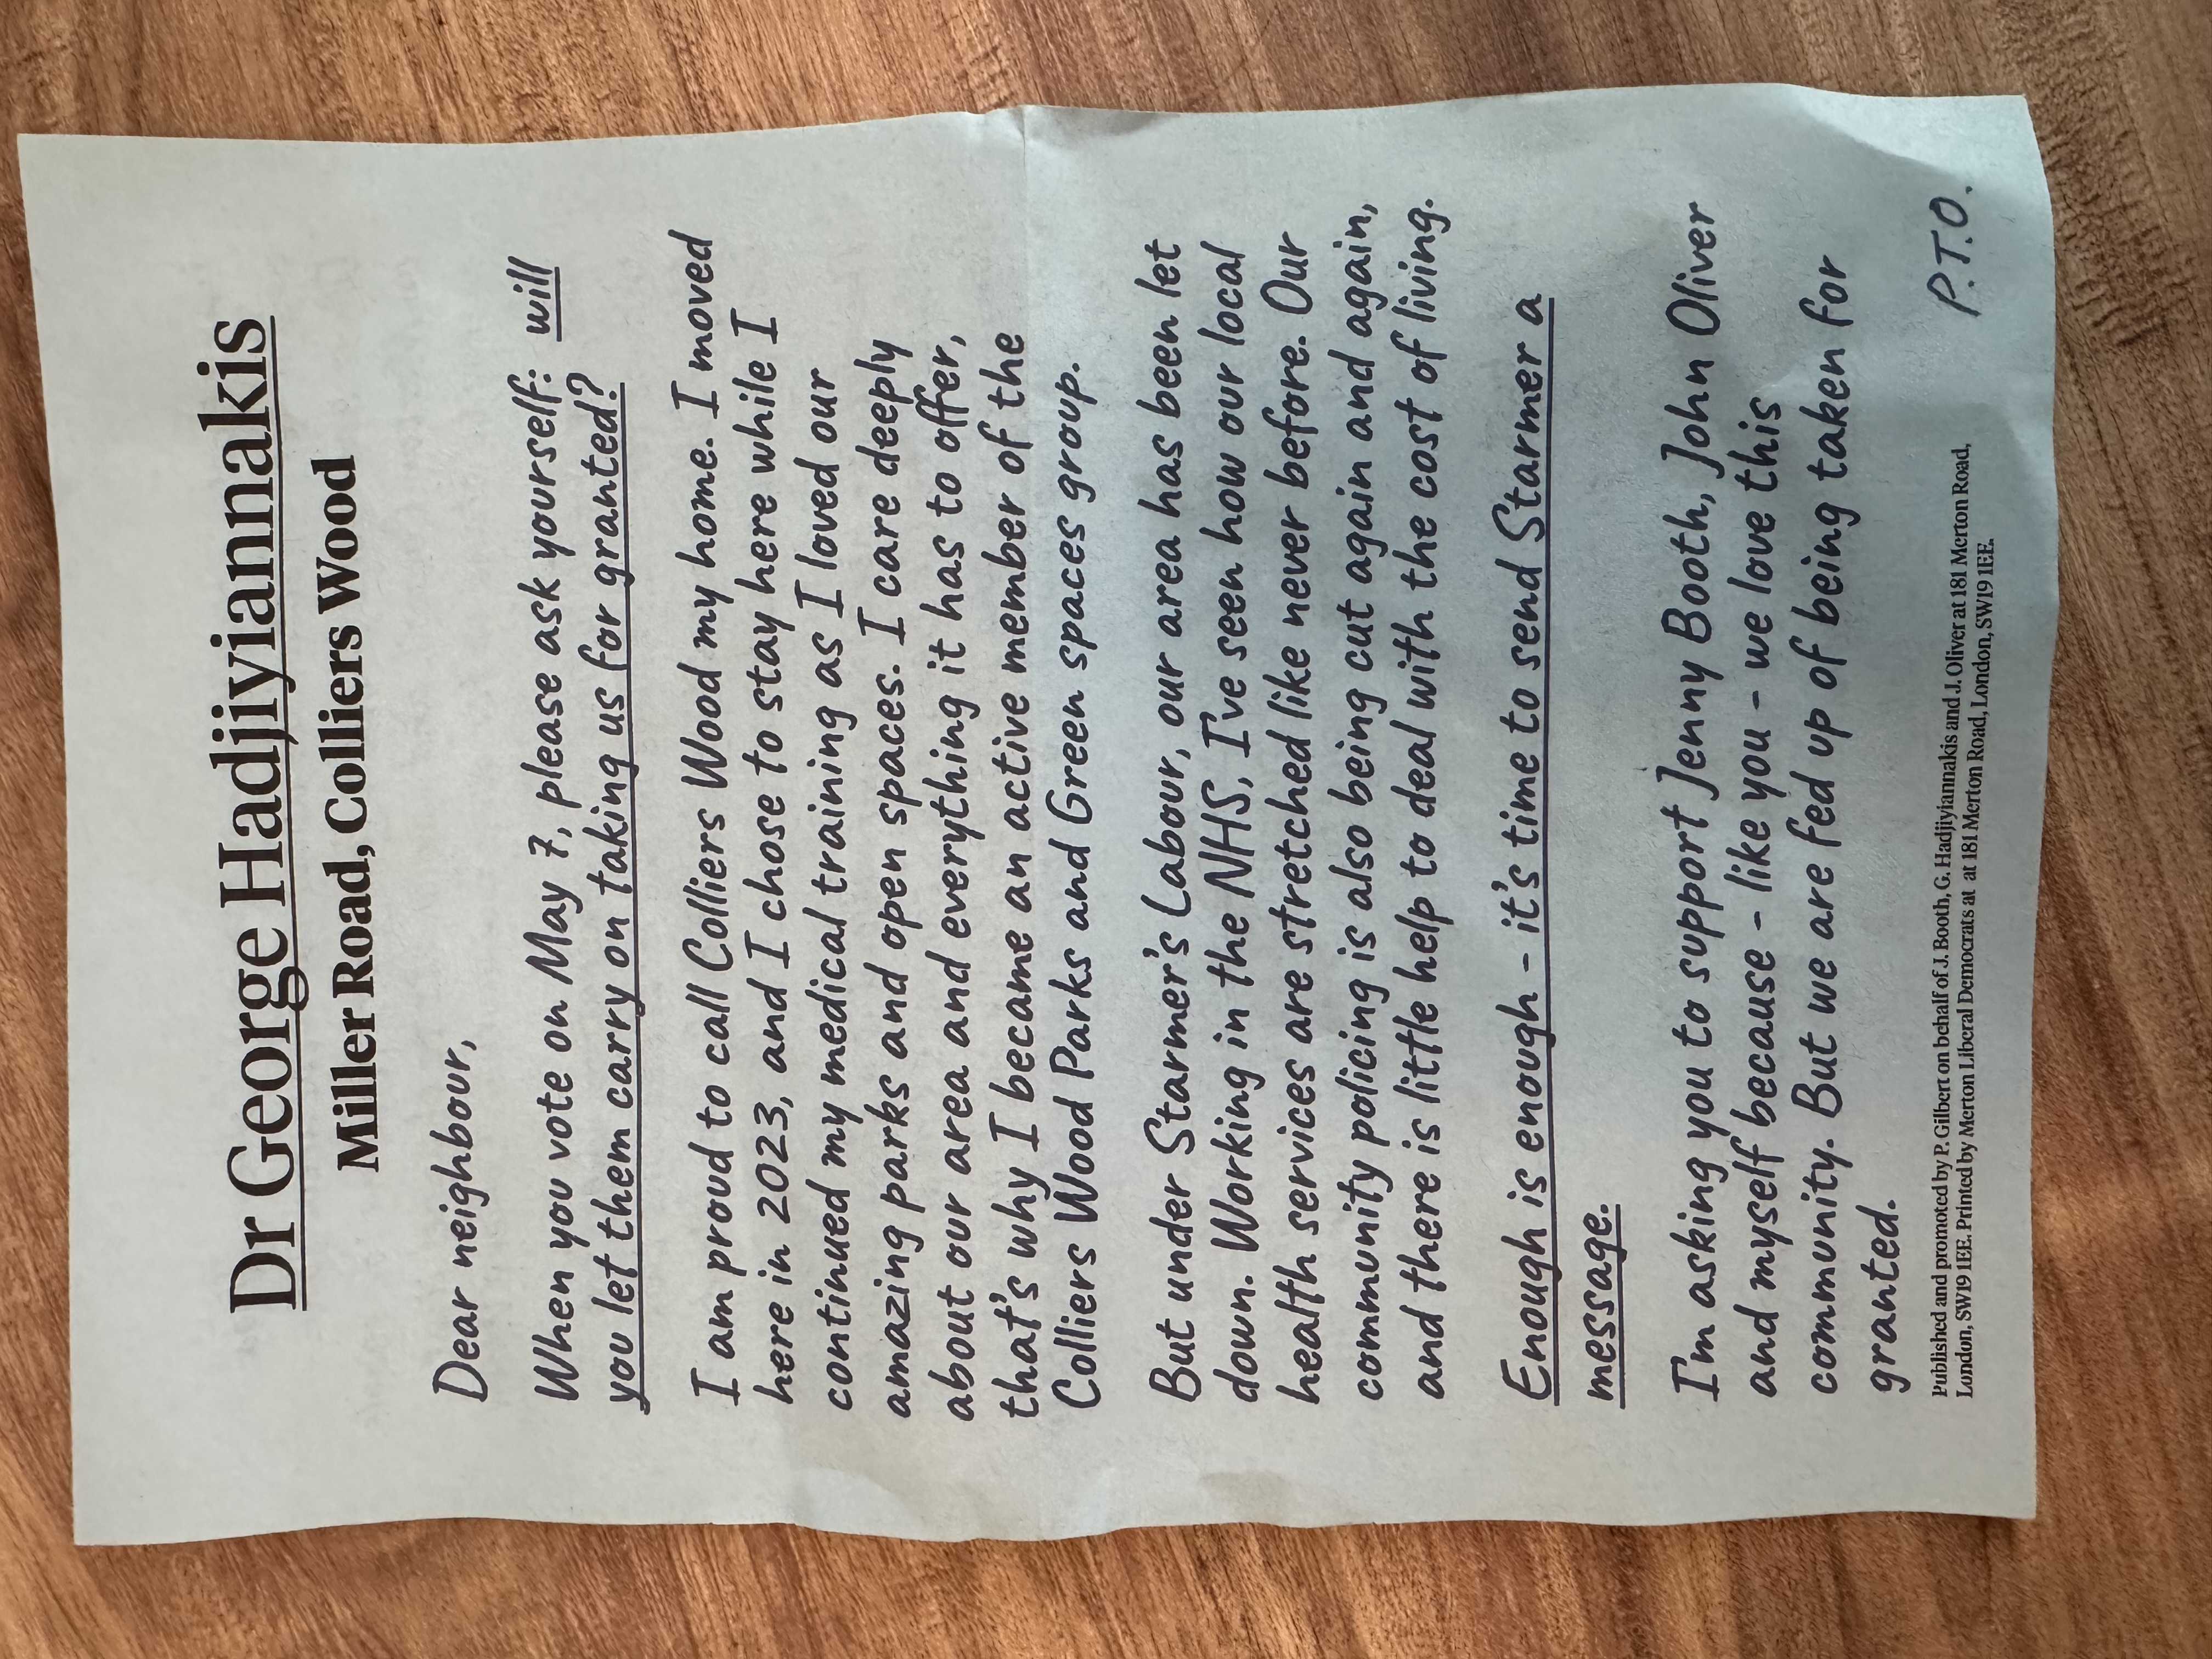 Dr George Hadjiyiannakis
Miller Road, Colliers Wood
Dear neighbour,
When you vote on May 7, please ask yourself: will
you let them carry on taking us for granted?
I am proud to call Colliers Wood my home. I moved
here in 2023, and I chose to stay here while I
continued my medical training as I loved our
amazing parks and open spaces. I care deeply
about our area and everything it has to offer,
that's why I became an active member of the
Colliers Wood Parks and Green spaces group.
But under Starmer's Labour, our area has been let
down. Working in the NHS, I've seen how our local
health services are stretched like never before. Our
community policing is also being cut again and again,
and there is little help to deal with the cost of living.
Enough is enough - it's time to send Starmer a
message.
I'm asking you to support Jenny Booth, John Oliver
and myself because - like you - we love this
community. But we are fed up of being taken for
granted.
P.T.O.
Published and promoted by P. Gilbert on behalf of J. Booth, G. Hadjiyiannakis and J. Oliver at 181 Merton Road,
London, SW19 1EE. Printed by Merton Liberal Democrats at at 181 Merton Road, London, SW19 1EE.